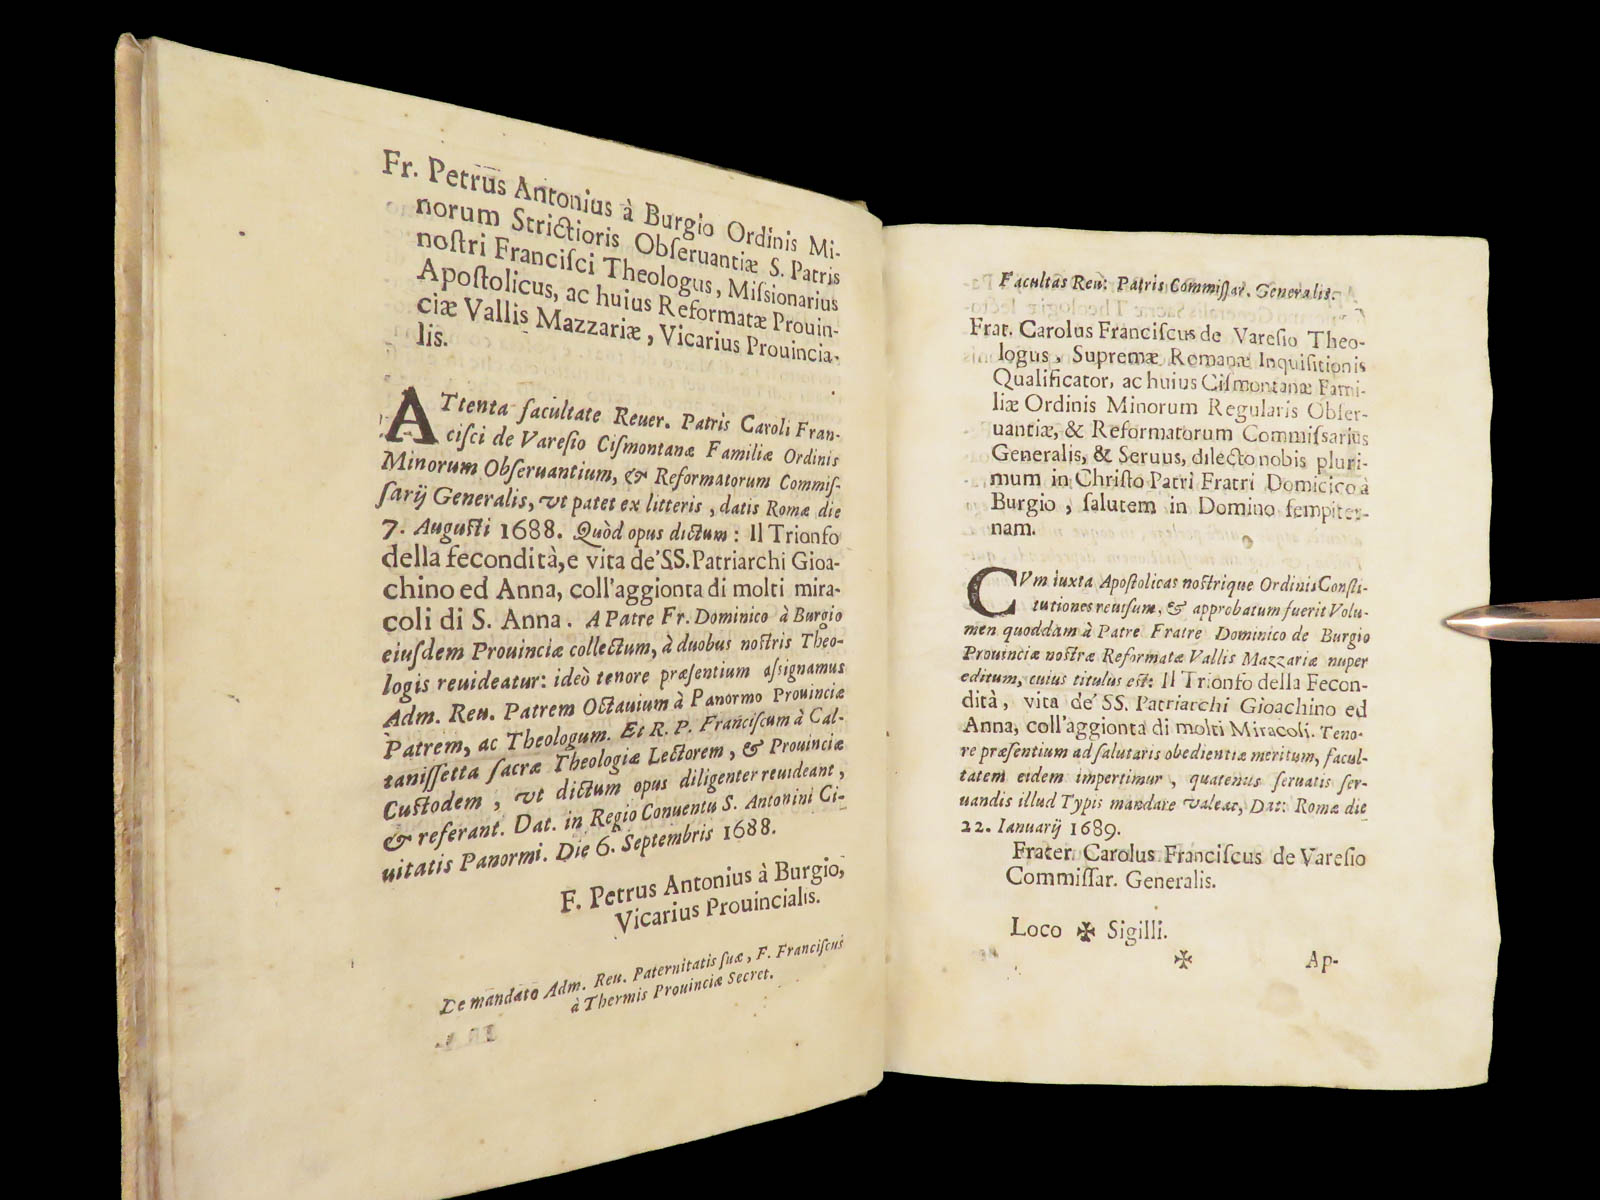 Fr. Petrus Antonius à Burgio Ordinis Mi-
norum Strictioris Obſeruantiæ S. Patris
noſtri Franciſci Theologus, Miſsionarius
Apoſtolicus, ac huius Reformatæ Prouin-
ciæ Vallis Mazzariæ, Vicarius Prouincia-
lis.
ATtenta facultate Reuer. Patris Caroli Fran-
ciſci de Vareſio Ciſmontanæ Familiæ Ordinis
Minorum Obſeruantium, & Reformatorum Commiſ-
ſarij Generalis, vt patet ex litteris, datis Romæ die
7. Auguſti 1688. Quòd opus dictum: Il Trionfo
della fecondità, e vita de' SS. Patriarchi Gioa-
chino ed Anna, coll'aggionta di molti mira-
coli di S. Anna. A Patre Fr. Dominico à Burgio
eiuſdem Prouinciæ collectum, à duobus noſtris Theo-
logis reuideatur: ideò tenore præſentium aſsignamus
Adm. Reu. Patrem Octauium à Panormo Prouinciæ
Patrem, ac Theologum. Et R. P. Franciſcum à Cal-
taniſſetta ſacræ Theologiæ Lectorem, & Prouinciæ
Cuſtodem, vt dictum opus diligenter reuideant,
& referant. Dat. in Regio Conuentu S. Antonini Ci-
uitatis Panormi. Die 6. Septembris 1688.
F. Petrus Antonius à Burgio,
Vicarius Prouincialis.
De mandato Adm. Reu. Paternitatis ſuæ, F. Franciſcus
à Thermis Prouinciæ Secret.
Facultas Reu: Patris Commiſſar. Generalis.
Frat. Carolus Franciſcus de Vareſio Theo-
logus, Supremæ Romanæ Inquiſitionis
Qualificator, ac huius Ciſmontanæ Fami-
liæ Ordinis Minorum Regularis Obſer-
uantiæ, & Reformatorum Commiſsarius
Generalis, & Seruus, dilecto nobis pluri-
mum in Chriſto Patri Fratri Domicico à
Burgio, ſalutem in Domino ſempiter-
nam.
CVm iuxta Apoſtolicas noſtrique Ordinis Conſti-
tutiones reuiſum, & approbatum fuerit Volu-
men quoddam à Patre Fratre Dominico de Burgio
Prouinciæ noſtræ Reformatæ Vallis Mazzariæ nuper
editum, cuius titulus eſt: Il Trionfo della Fecon-
dità, vita de' SS. Patriarchi Gioachino ed
Anna, coll'aggionta di molti Miracoli. Teno-
re præſentium ad ſalutaris obedientiæ meritum, facul-
tatem eidem impertimur, quatenus ſeruatis ſer-
uandis illud Typis mandare valeat, Dat: Romæ die
22. Ianuarij 1689.
Frater Carolus Franciſcus de Vareſio
Commiſſar. Generalis.
Loco ✠ Sigilli.
✠ Ap-